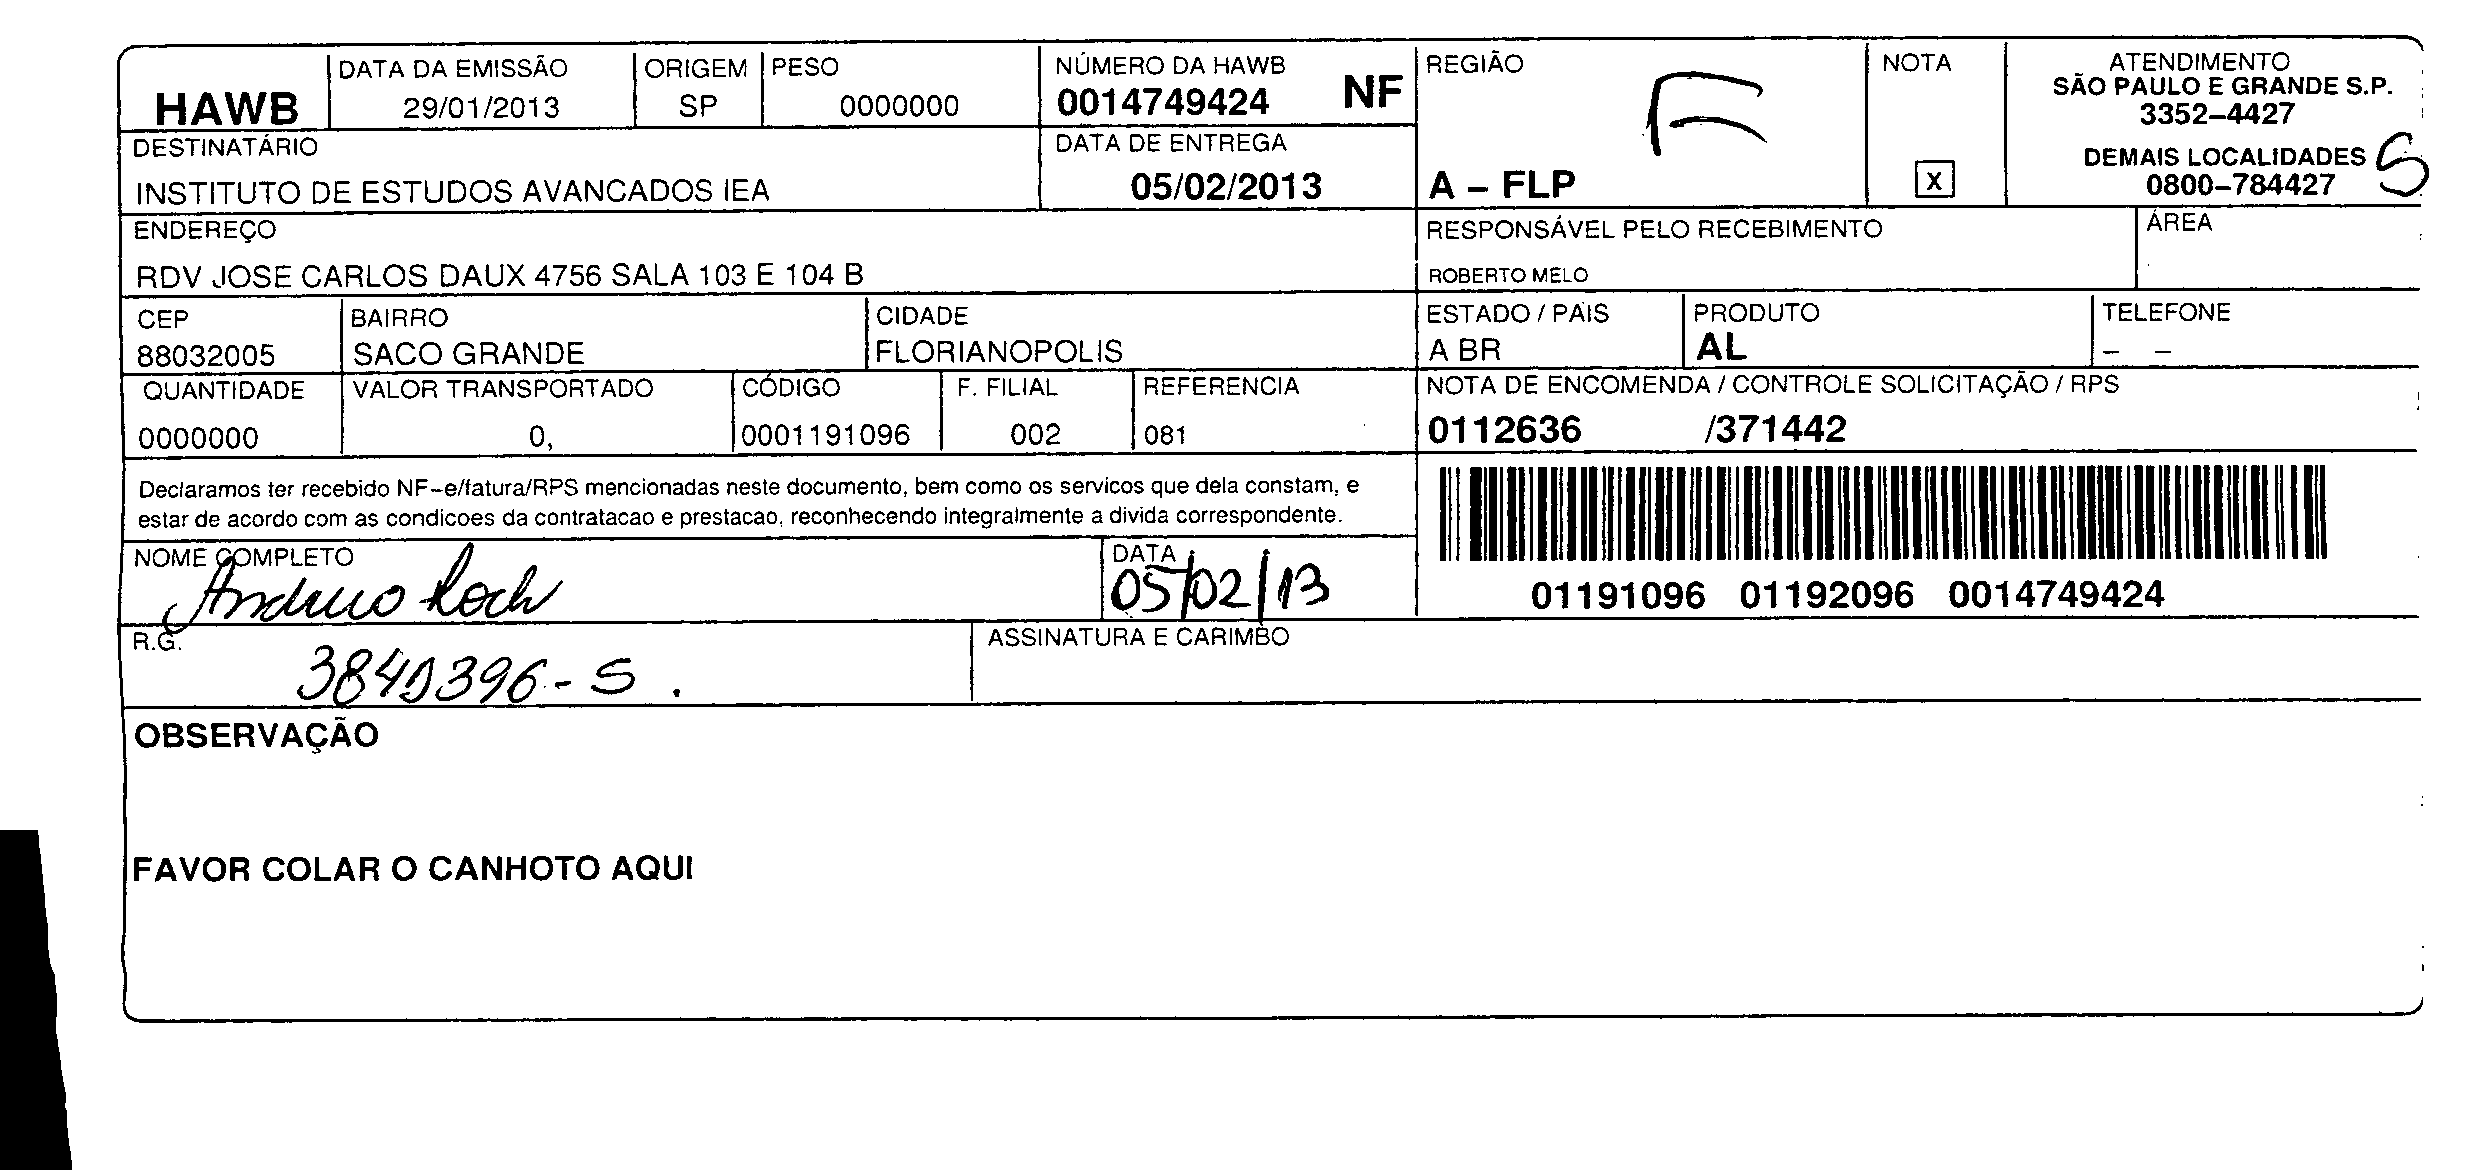 HAWB
DATA DA EMISSÃO
29/01/2013
ORIGEM
SP
PESO
0000000
NÚMERO DA HAWB
0014749424 NF
REGIÃO
F
A – FLP
NOTA
X
ATENDIMENTO
SÃO PAULO E GRANDE S.P.
3352–4427
DEMAIS LOCALIDADES
0800–784427
S
DESTINATÁRIO
INSTITUTO DE ESTUDOS AVANCADOS IEA
DATA DE ENTREGA
05/02/2013
ENDEREÇO
RDV JOSE CARLOS DAUX 4756 SALA 103 E 104 B
RESPONSÁVEL PELO RECEBIMENTO
ROBERTO MELO
ÁREA
CEP
88032005
BAIRRO
SACO GRANDE
CIDADE
FLORIANOPOLIS
ESTADO / PAIS
A BR
PRODUTO
AL
TELEFONE
– –
QUANTIDADE
0000000
VALOR TRANSPORTADO
0,
CÓDIGO
0001191096
F. FILIAL
002
REFERENCIA
081
NOTA DE ENCOMENDA / CONTROLE SOLICITAÇÃO / RPS
0112636 /371442
Declaramos ter recebido NF–e/fatura/RPS mencionadas neste documento, bem como os servicos que dela constam, e
estar de acordo com as condicoes da contratacao e prestacao, reconhecendo integralmente a divida correspondente.
01191096 01192096 0014749424
NOME COMPLETO
DATA
05/02/13
R.G.
ASSINATURA E CARIMBO
OBSERVAÇÃO
FAVOR COLAR O CANHOTO AQUI